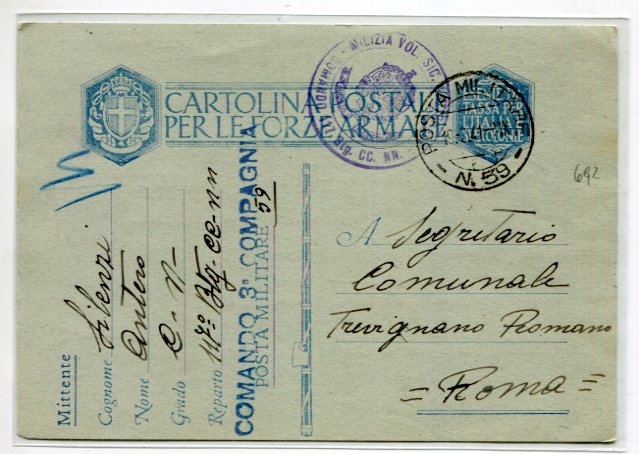 CARTOLINA POSTALE
PER LE FORZE ARMATE
MILIZIA VOL. SIC.
CC. NN.
POSTA MIL
N. 59
692
A Segretario
Comunale
Trevignano Romano
= Roma =
Mittente
Cognome Silenzi
Nome Antero
Grado C-N-
Reparto Btg. CC-nn
POSTA MILITARE 59
COMANDO 3ª COMPAGNIA